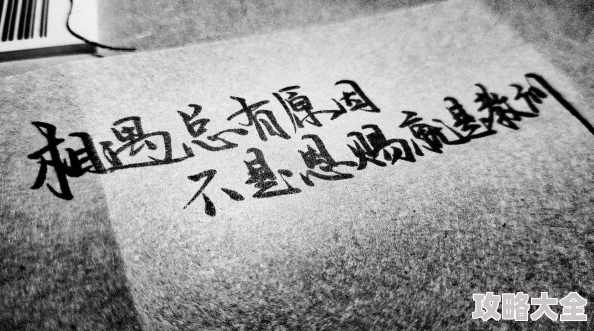 相遇总有原因
不是恩赐就是教训
攻略大全